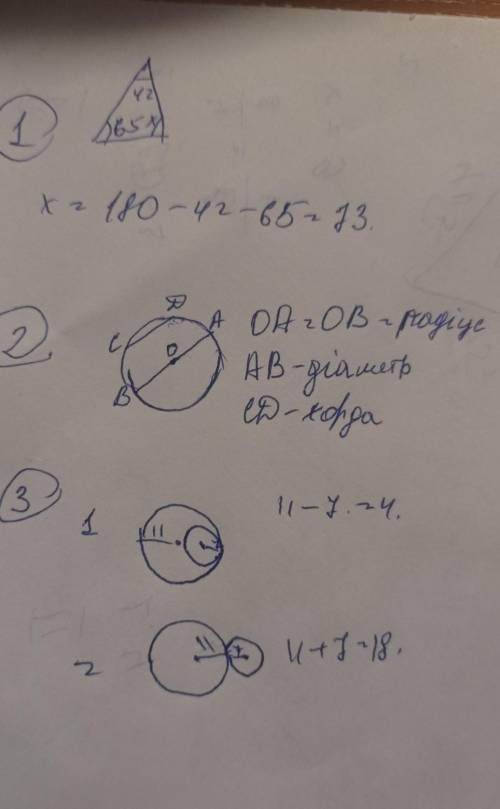 1
42
65 x
x = 180 - 42 - 65 = 73.
2
D
A
C
O
B
OA = OB = радіус
AB - діаметр
CD - хорда
3
1
11
7
11 - 7 = 4.
2
11
7
11 + 7 = 18.